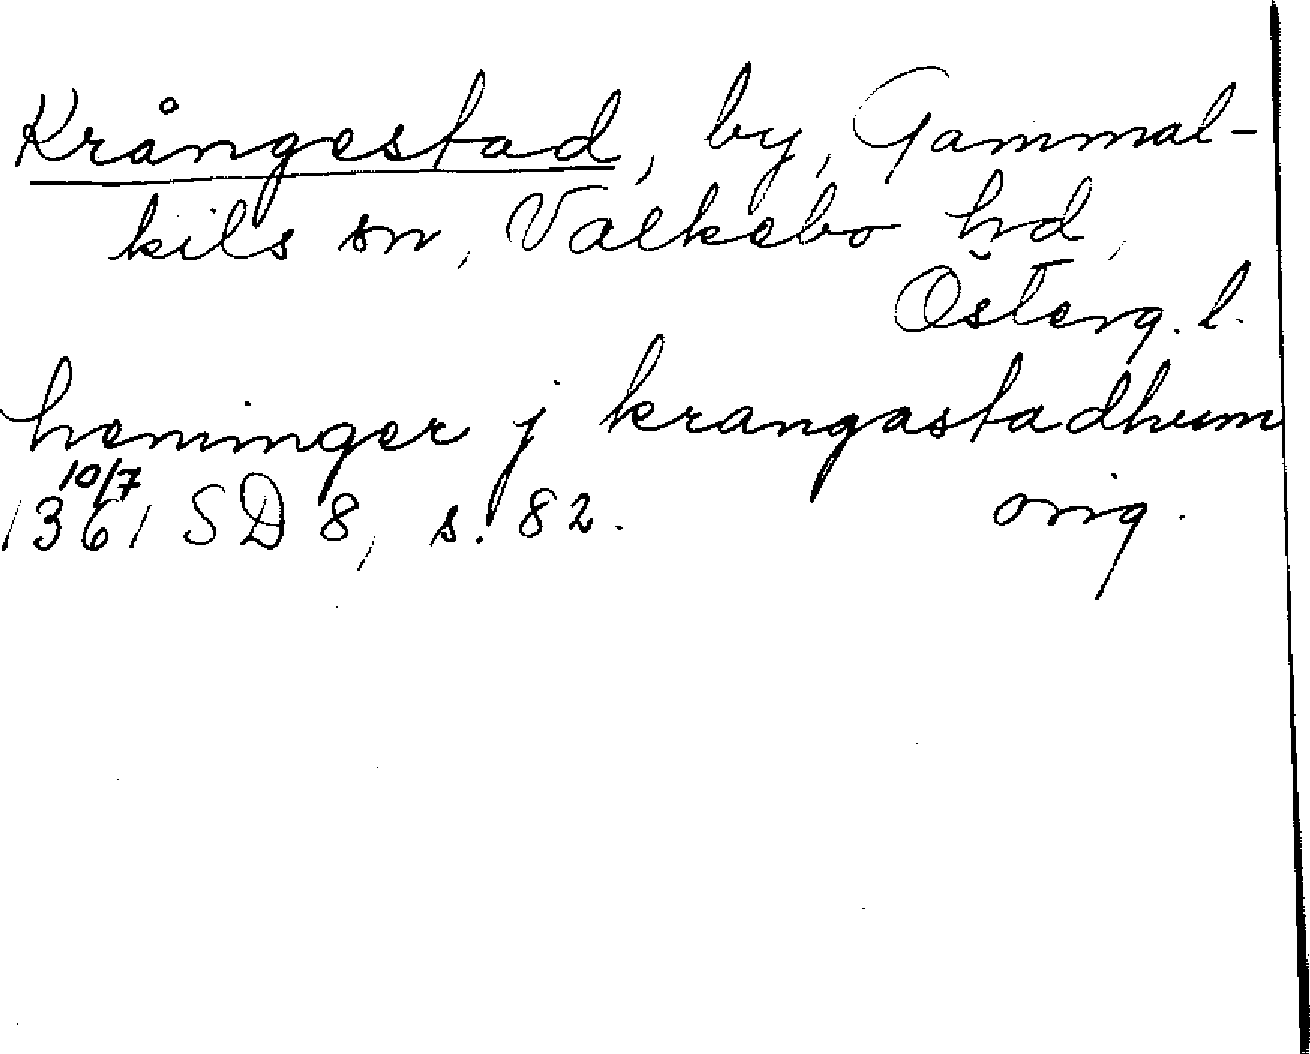 Krångestad, by, Gammal-
kils sn, Valkebo hd,
Österg. l.
heninger j krangastadhum
10/7
1361 SD 8, s. 82. orig.